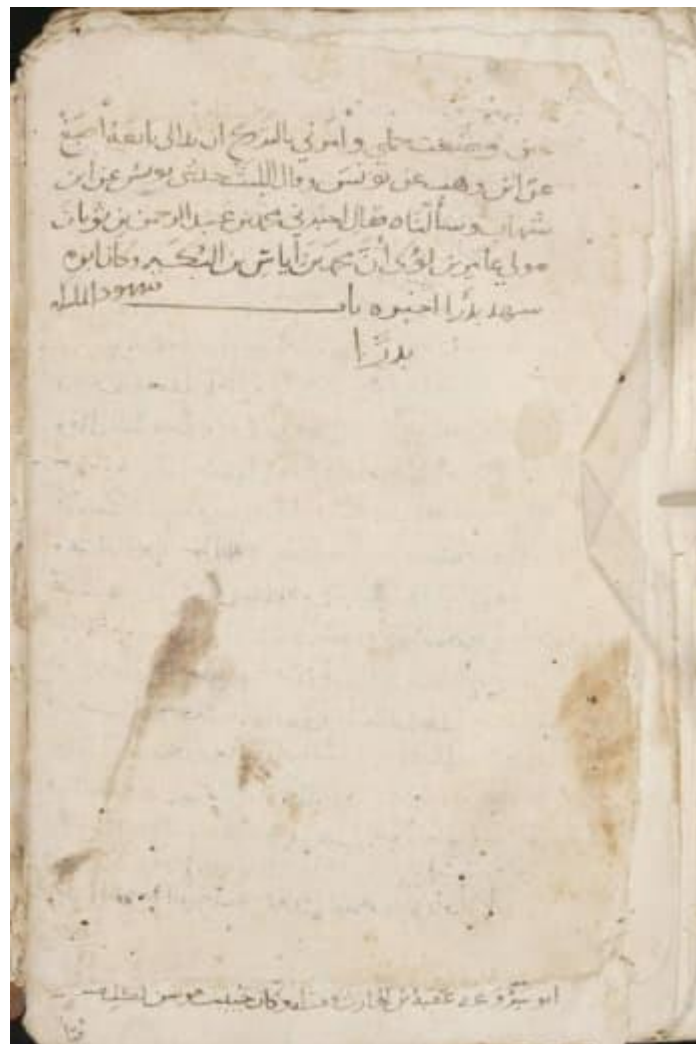 حين وضعت حملي وأمرني بالتزوج ان بدا لي تابعه أصبغ
عن ابن وهب عن يونس وقال الليث حدثني يونس عن ابن
شهاب وسألناه فقال اخبرني محمد بن عبد الرحمن بن ثوبان
مولى عامر بن لؤى أنَّ محمد بن اياس بن البُكَير وكان ابوه
شهد بدرًا اخبره باب شهود الملائكة
بدرًا
ابو سروعة عقبة بن الحارث فقتله وكان خبيب هو سن